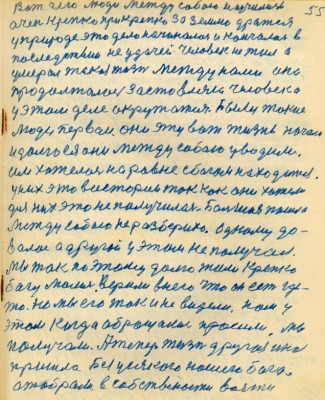 55
Вот чего люди между собою научились
очен крепко прикрепко за землю дратся
у природе это дело начиналос и кончалос в
последствии не удачей человек не жил а
умерал такая жизн между нами она
продолжалас заставляла человека
у этом деле окружатся. Были такие
люди первом они эту вот жизнь начали
и далос я они между собою уводили.
им хотелос на равне с богом находится.
у них это в истории так как они хотели
для них это не получилас болшая пошла
между собою не разбериха. Одному да-
валос а другой у этом не получал.
Мы так по этому долго жили крепко
богу молилс верили в него что он ест где-
то. но мы его так и не видели, нам у
этом когда обращалис просили, мы
получали. А теперь жизн другая она
пришла без усякого нашего бога.
отобрали в собствености взяти